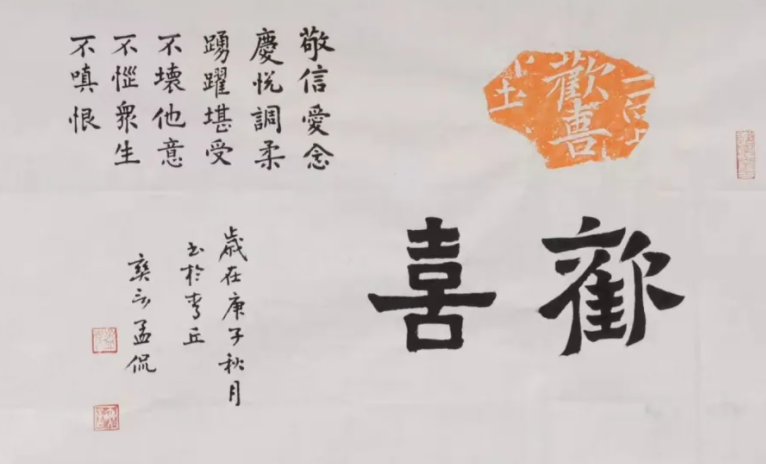 歡喜
歡喜
敬信愛念
慶悅調柔
踴躍堪受
不壞他意
不惱眾生
不嗔恨
歲在庚子秋月
書於青丘
孟侃